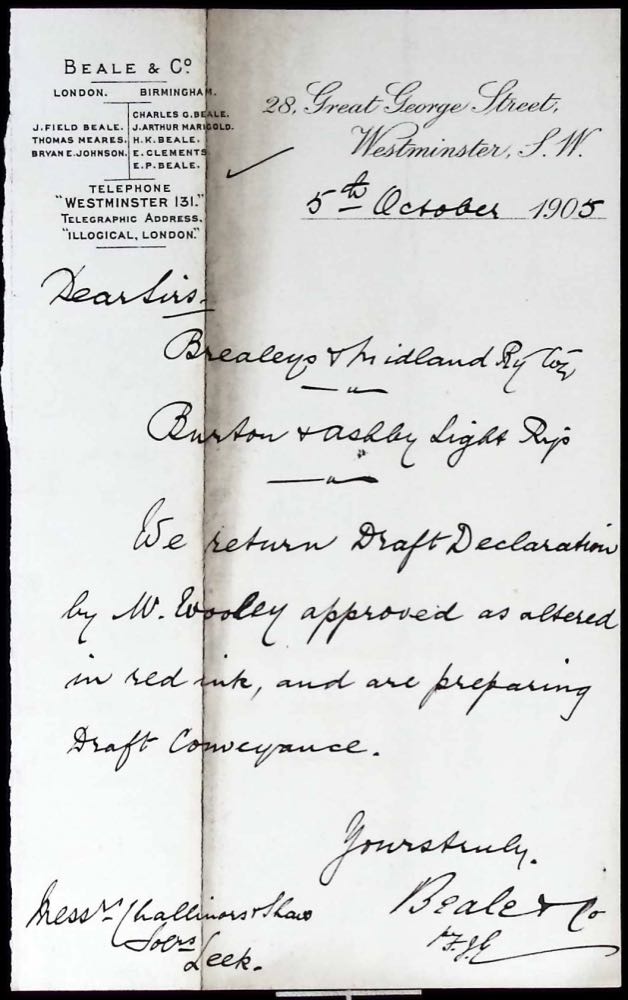 BEALE & Co.
LONDON. BIRMINGHAM.
J. FIELD BEALE.
THOMAS MEARES.
BRYAN E. JOHNSON.
CHARLES G. BEALE.
J. ARTHUR MARIGOLD.
H. K. BEALE.
E. CLEMENTS
E. P. BEALE.
TELEPHONE
"WESTMINSTER 131."
TELEGRAPHIC ADDRESS,
"ILLOGICAL, LONDON."
28, Great George Street,
Westminster, S.W.
5th October 1905
Dear Sirs.
Brealeys & Midland Ry Coy
Burton & Ashby Light Rys
We return Draft Declaration
by W. Wooley approved as altered
in red ink, and are preparing
Draft Conveyance.
Yours truly.
Beale & Co
Messrs Challinors & Shaw
Solrs
Leek.